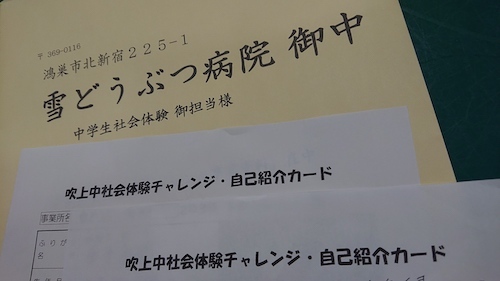 〒 369-0116
鴻巣市北新宿２２５－１
雪どうぶつ病院 御中
中学生社会体験 御担当様
吹上中社会体験チャレンジ・自己紹介カード
事業所名
ふりが
名
吹上中社会体験チャレンジ・自己紹介カード